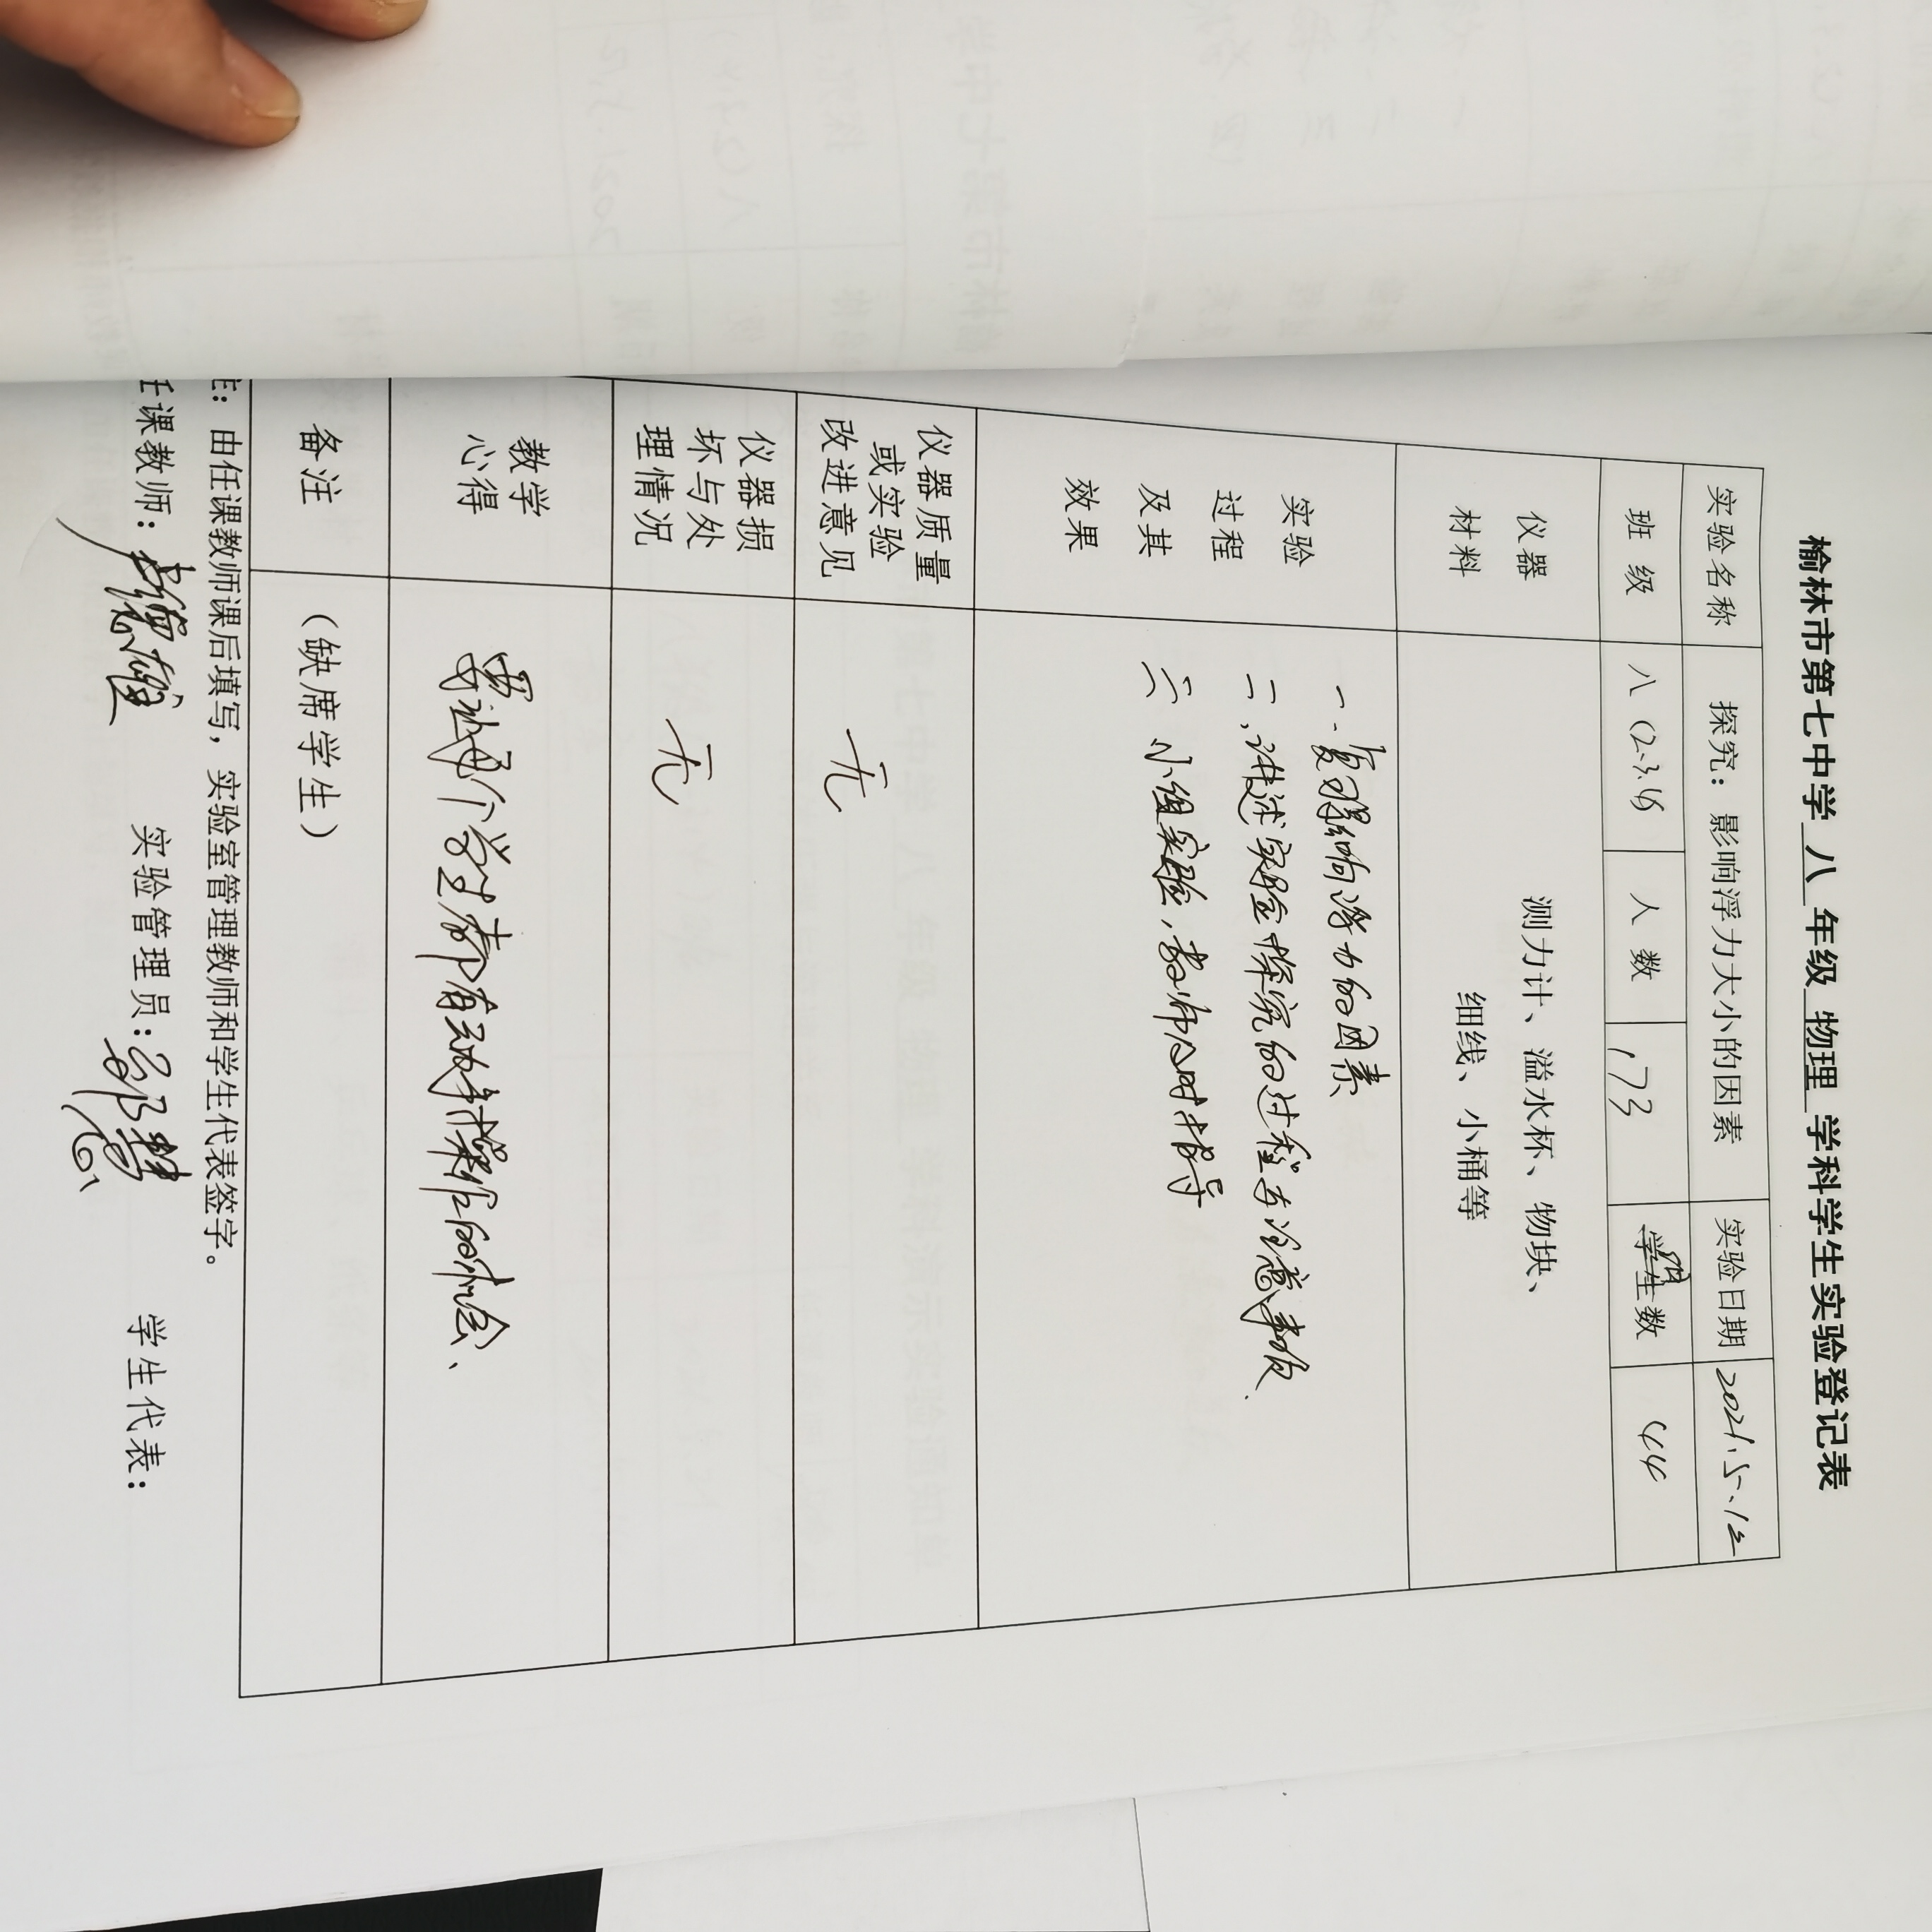 榆林市第七中学 八 年级 物理 学科学生实验登记表
实验名称 探究：影响浮力大小的因素 实验日期 2021.5.12
班 级 八(2.3.4) 人 数 173 学生数 44
仪器
材料
测力计、溢水杯、物块、
细线、小桶等
实验
过程
及其
效果
一、复习影响浮力的因素
二、讲述实验探究的过程与注意事项.
三 小组实验，教师及时指导
仪器质量
或实验
改进意见
无
仪器损
坏与处
理情况
无
教学
心得
要让每个学生都有动手操作的机会、
备注 （缺席学生）
注：由任课教师课后填写，实验室管理教师和学生代表签字。
任课教师： 实验管理员： 学生代表：